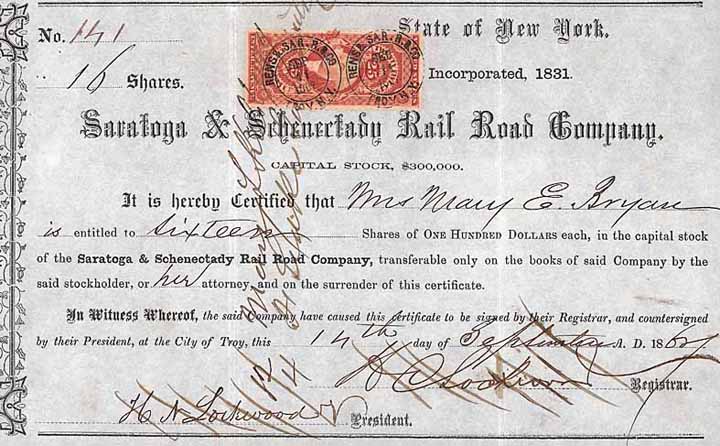 No. 141
State of New York.
16 Shares.
Incorporated, 1831.
RENS & SAR. R.R. CO
TROY N.Y.
RENS & SAR. R.R. CO
TROY N.Y.
25
Saratoga & Schenectady Rail Road Company.
CAPITAL STOCK, $300,000.
It is hereby Certified that Mrs Mary E. Bryan
is entitled to Sixteen Shares of ONE HUNDRED DOLLARS each, in the capital stock
of the Saratoga & Schenectady Rail Road Company, transferable only on the books of said Company by the
said stockholder, or her attorney, and on the surrender of this certificate.
In Witness Whereof, the said Company have caused this certificate to be signed by their Registrar, and countersigned
by their President, at the City of Troy, this 14th day of September A. D. 186
Registrar.
H N Lockwood President.